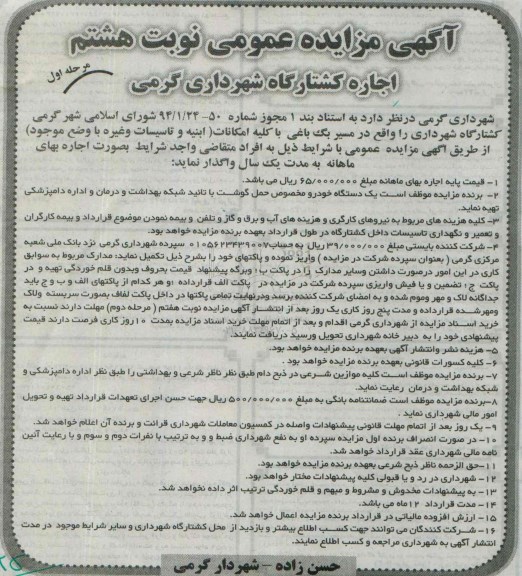 آگهی مزایده عمومی نوبت هشتم
مرحله اول
اجاره کشتارگاه شهرداری گرمی
شهرداری گرمی درنظر دارد به استناد بند ۱ مجوز شماره ۵۰- ۹۴/۱/۲۴ شورای اسلامی شهر گرمی
کشتارگاه شهرداری را واقع در مسیر بک باغی با کلیه امکانات( ابنیه و تاسیسات وغیره با وضع موجود)
از طریق آگهی مزایده عمومی با شرایط ذیل به افراد متقاضی واجد شرایط بصورت اجاره بهای
ماهانه به مدت یک سال واگذار نماید:
۱- قیمت پایه اجاره بهای ماهانه مبلغ ۶۵/۰۰۰/۰۰۰ ریال می باشد.
۲- برنده مزایده موظف است یک دستگاه خودرو مخصوص حمل گوشت با تائید شبکه بهداشت و درمان و اداره دامپزشکی
تهیه نماید.
۳- کلیه هزینه های مربوط به نیروهای کارگری و هزینه های آب و برق و گاز و تلفن و بیمه نمودن موضوع قرارداد و بیمه کارگران
و تعمیر و نگهداری تاسیسات داخل کشتارگاه در طول قرارداد بعهده برنده مزایده خواهد بود.
۴- شرکت کننده بایستی مبلغ ۳۹/۰۰۰/۰۰۰ ریال به حساب ۰۱۰۵۶۲۳۴۳۹۰۰۷ سپرده شهرداری گرمی نزد بانک ملی شعبه
مرکزی گرمی ( بعنوان سپرده شرکت در مزایده ) واریز نموده و پاکتهای خود را بشرح ذیل تکمیل نماید: مدارک مربوط به سوابق
کاری در این امور درصورت داشتن وسایر مدارک را در پاکت ب؛ وبرگه پیشنهاد قیمت بحروف وبدون قلم خوردگی تهیه و در
پاکت ج؛ تضمین و یا فیش واریزی سپرده شرکت در مزایده در پاکت الف قرارداده او هر کدام از پاکتهای الف و ب و ج باید
جداگانه لاک و مهر وموم شده و به امضای شرکت کننده برسد ودرنهایت تمامی پاکتها در داخل پاکت لفاف بصورت سربسته ولاک
ومهرشده قرارداده و مدت پنج روز کاری یک روز بعد از انتشار آگهی مزایده نوبت هفتم ( مرحله دوم) مهلت دارند نسبت به
خرید اسناد مزایده از شهرداری گرمی اقدام و بعد از اتمام مهلت خرید اسناد مزایده بمدت ۱۰ روز کاری فرصت دارند قیمت
پیشنهادی خود را به دبیر خانه شهرداری تحویل ورسید دریافت نمایند.
۵- هزینه نشر وانتشار آگهی بعهده برنده مزایده خواهد بود.
۶- کلیه کسورات قانونی بعهده برنده مزایده خواهد بود .
۷- برنده مزایده موظف است کلیه موازین شرعی در ذبح دام طبق نظر ناظر شرعی و بهداشتی را طبق نظر اداره دامپزشکی و
شبکه بهداشت و درمان رعایت نماید.
۸-برنده مزایده موظف است ضمانتنامه بانکی به مبلغ ۵۰۰/۰۰۰/۰۰۰ ریال جهت حسن اجرای تعهدات قرارداد تهیه و تحویل
امور مالی شهرداری نماید .
۹- یک روز بعد از اتمام مهلت قانونی پیشنهادات واصله در کمسیون معاملات شهرداری قرائت و برنده آن اعلام خواهد شد.
۱۰- در صورت انصراف برنده اول مزایده سپرده او به نفع شهرداری ضبط و و به ترتیب با نفرات دوم و سوم و با رعایت آئین
نامه مالی شهرداری عقد قرارداد خواهد شد.
۱۱-حق الزحمه ناظر ذبح شرعی بعهده برنده مزایده خواهد بود.
۱۲- شهرداری در رد و یا قبولی کلیه پیشنهادات مختار خواهد بود.
۱۳- به پیشنهادات مخدوش و مشروط و مبهم و قلم خوردگی ترتیب اثر داده نخواهد شد.
۱۴- مدت قرارداد ۱۲ ماه می باشد.
۱۵- ارزش افزوده مالیاتی در قرارداد برنده مزایده اعمال خواهد شد.
۱۶- شرکت کنندگان می توانند جهت کسب اطلاع بیشتر و بازدید از محل کشتارگاه شهرداری و سایر شرایط موجود در مدت
انتشار آگهی به شهرداری مراجعه و کسب اطلاع نمایند.
حسن زاده - شهردار گرمی